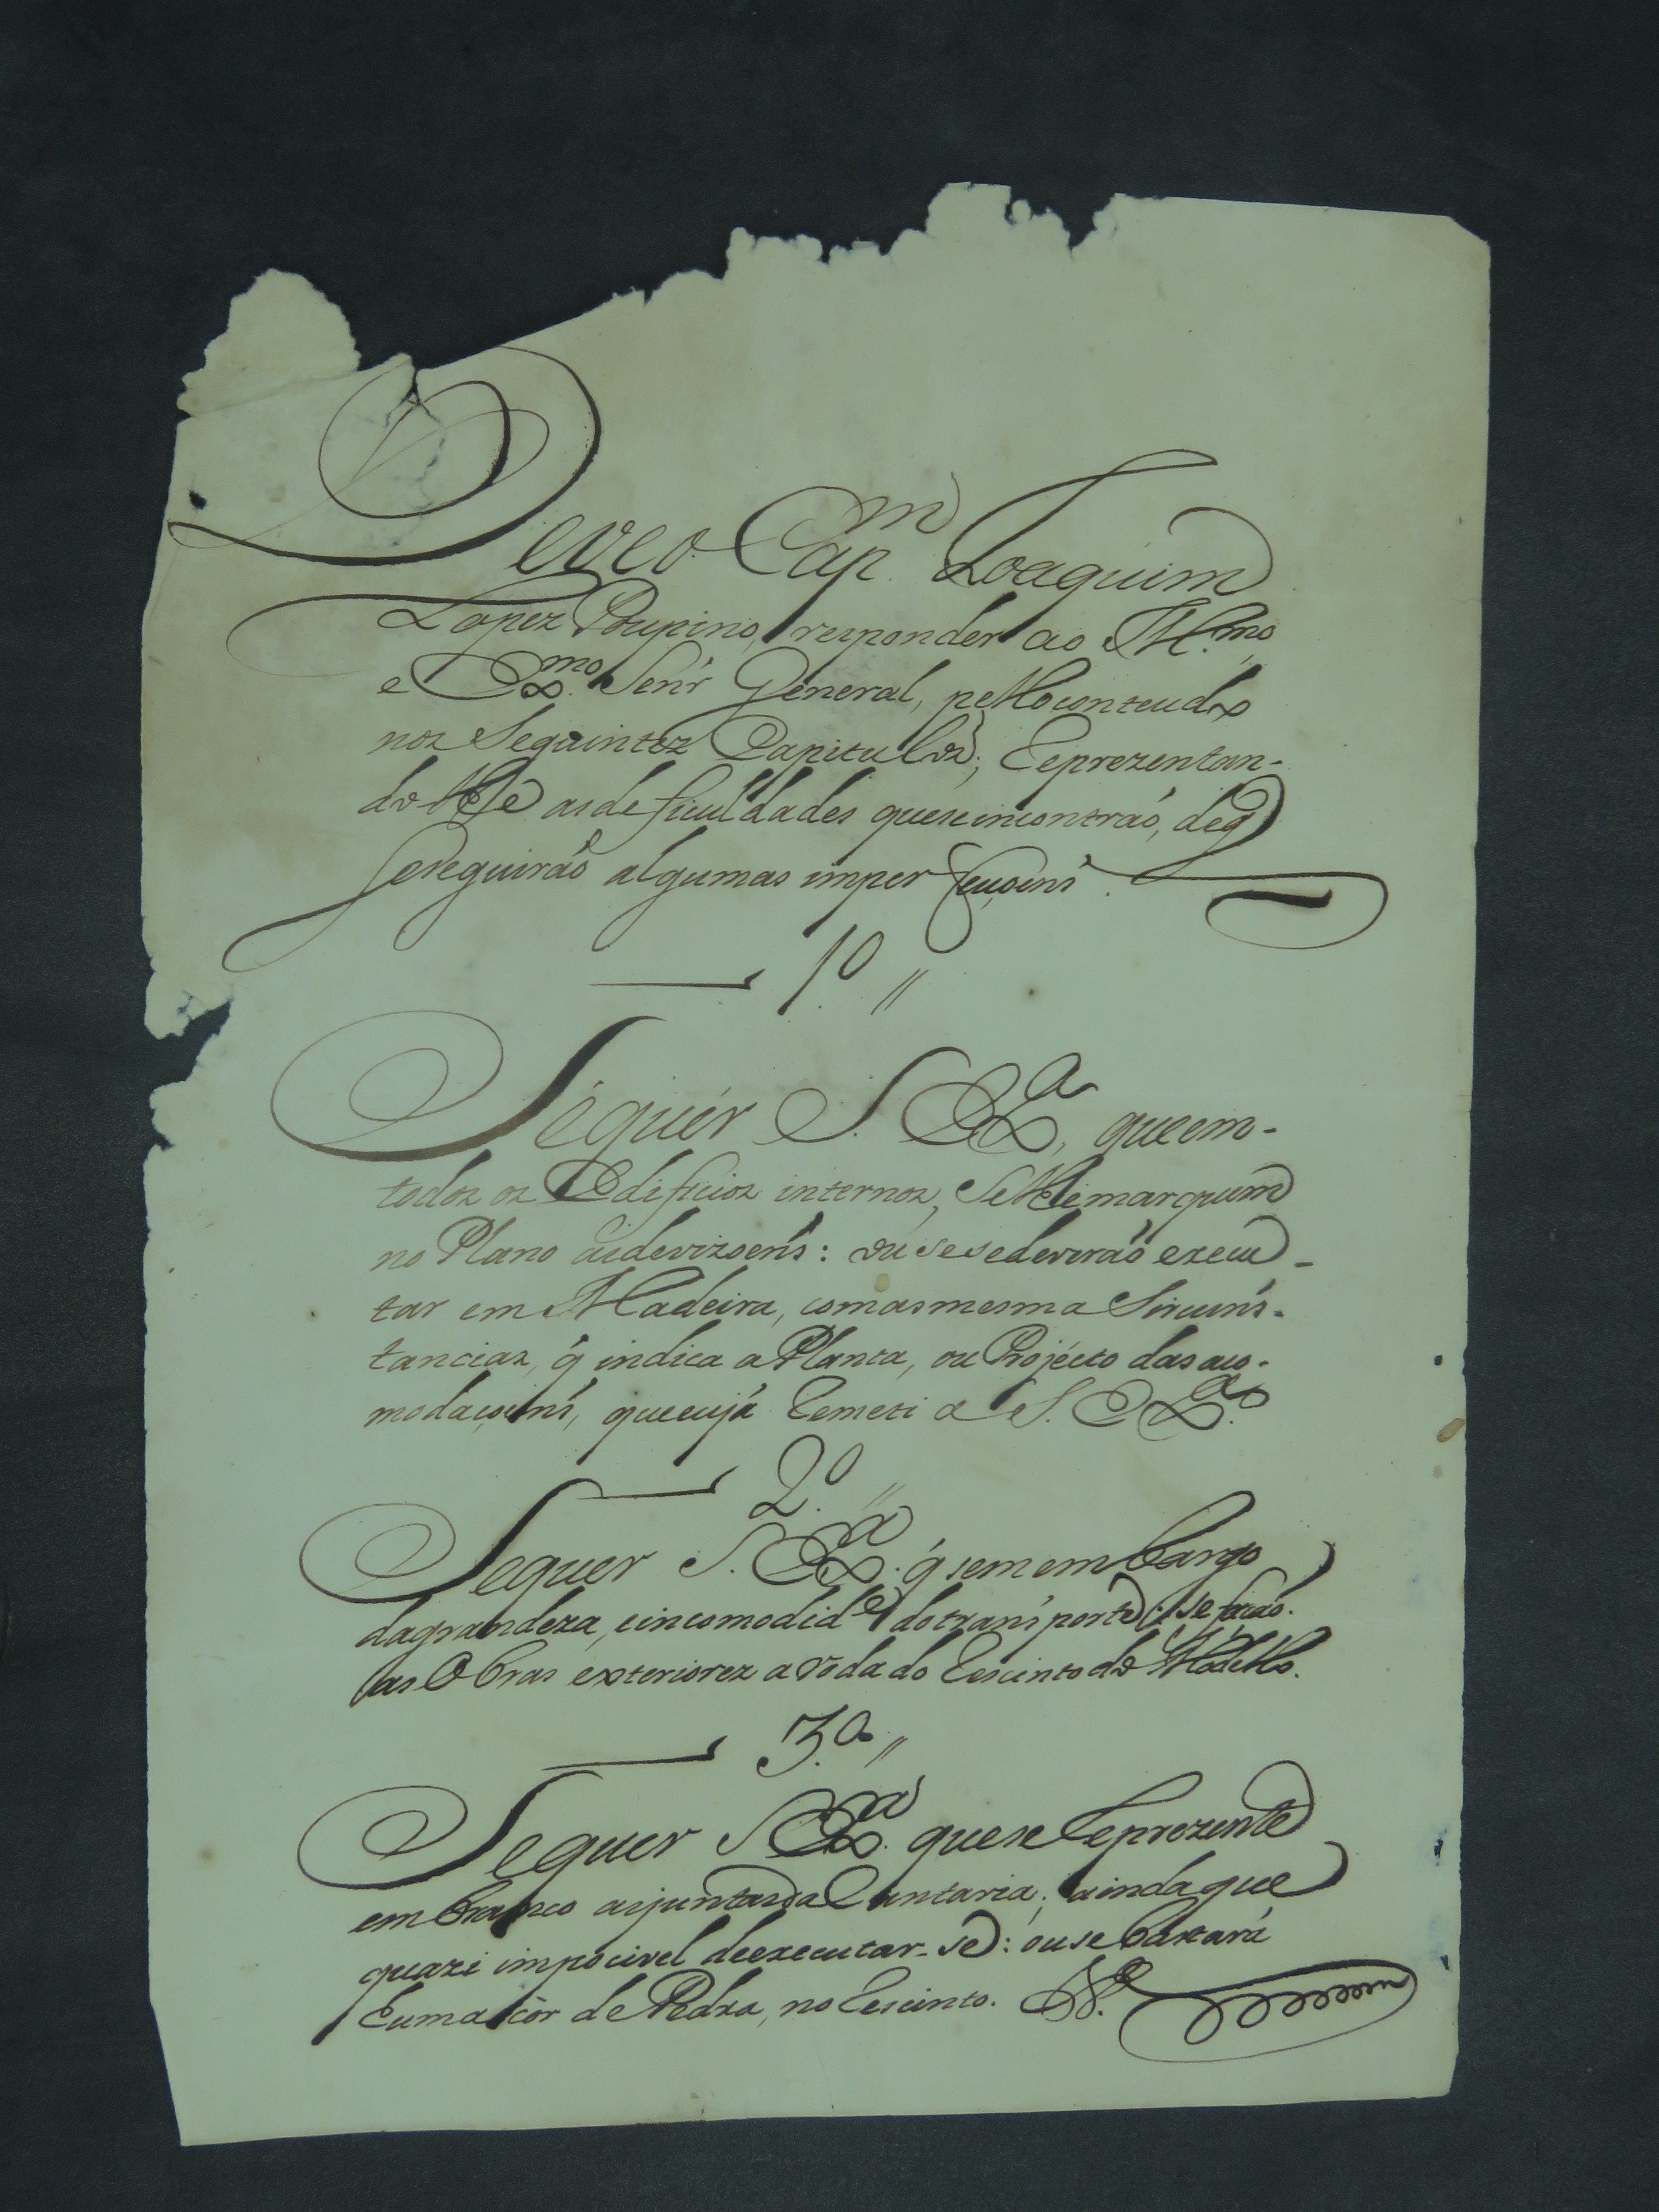 Deveo Cap.m Joaquim
Lopez Poupino, responder ao Ill.mo
e Ex.mo Sen'r General, pello conteudo
nos Seguintez Capitulos; Reprezentan-
do-lhe as deficuldades que se incontrão, de q̃
se seguirão algumas imperfeuçoens.
1o,,
Sé quér S. Exa, que em-
todos os Edificios internos, Se lhe marquem
no Plano as devizoens: ou se se deverão execu-
tar em Madeira, com as mesma Sircuns-
tancias, q̃ indica a Planta, ou Projécto das aco-
modaçoens, que eu já Remeti a S. Exa.
2.o,,
Se quer S. Exa. q̃ sem embargo
da grandeza, e incomodide do transporte; se fação.
as Obras exteriorez a roda do Rescinto do Modello.
3.o,,
Se quer S Exa. que se Reprezente
em branco as juntas da Cantaria; ainda que
quazi impocivel de executar-se: ou se bastará
huma côr de Pedra, no Rescinto.